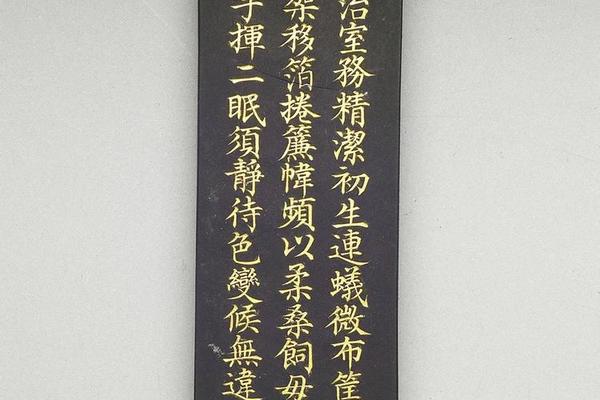 治室務精潔初生連蟻微布筐
架移箔捲簾幃頻以柔桑飼毋
手揮二眠須靜待色變候無違